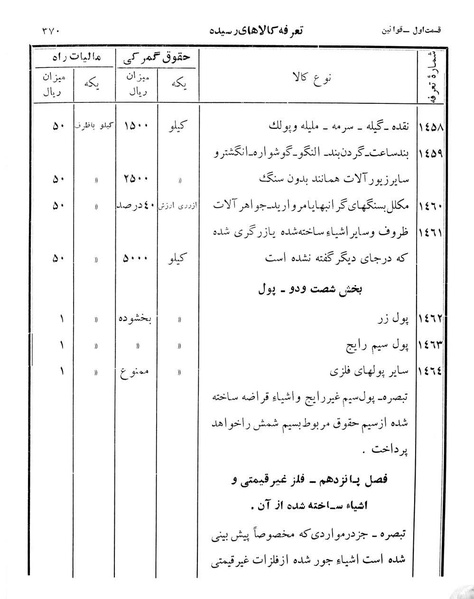 قسمت اول ـ قوانین    تعرفه کالاهای رسیده    ۳۷۰
شمارهٔ تعرفه    نوع کالا    حقوق گمرکی    مالیات راه
یکه    میزان ریال    یکه    میزان ریال
۱٤۵۸    نقده ـ گیله ـ سرمه ـ ملیله و پولك    کیلو    ۱۵۰۰    کیلو باظرف    ۵۰
۱٤۵۹    بندساعت ـ گردن بند ـ النگو ـ گوشواره ـ انگشتر و
سایر زیور آلات همانند بدون سنگ    »    ۲۵۰۰    »    ۵۰
۱٤۶۰    مکلل بسنگهای گرانبها یا مروارید ـ جواهر آلات    ازروی ارزش    ٤۰ درصد    »    ۵۰
۱٤۶۱    ظروف و سایر اشیاء ساخته شده یا زرگری شده
که درجای دیگر گفته نشده است    کیلو    ۵۰۰۰    »    ۵۰
بخش شصت ودو ـ پول
۱٤۶۲    پول زر    »    بخشوده    »    ۱
۱٤۶۳    پول سیم رایج    »    »    »    ۱
۱٤۶٤    سایر پولهای فلزی    »    ممنوع    »    ۱
تبصره ـ پول سیم غیر رایج و اشیاء قراضه ساخته
شده از سیم حقوق مربوط بسیم شمش را خواهد
پرداخت .
فصل پانزدهم ـ فلز غیر قیمتی و
اشیاء ساخته شده از آن .
تبصره ـ جز در مواردی که مخصوصاً پیش بینی
شده است اشیاء جور شده از فلزات غیر قیمتی